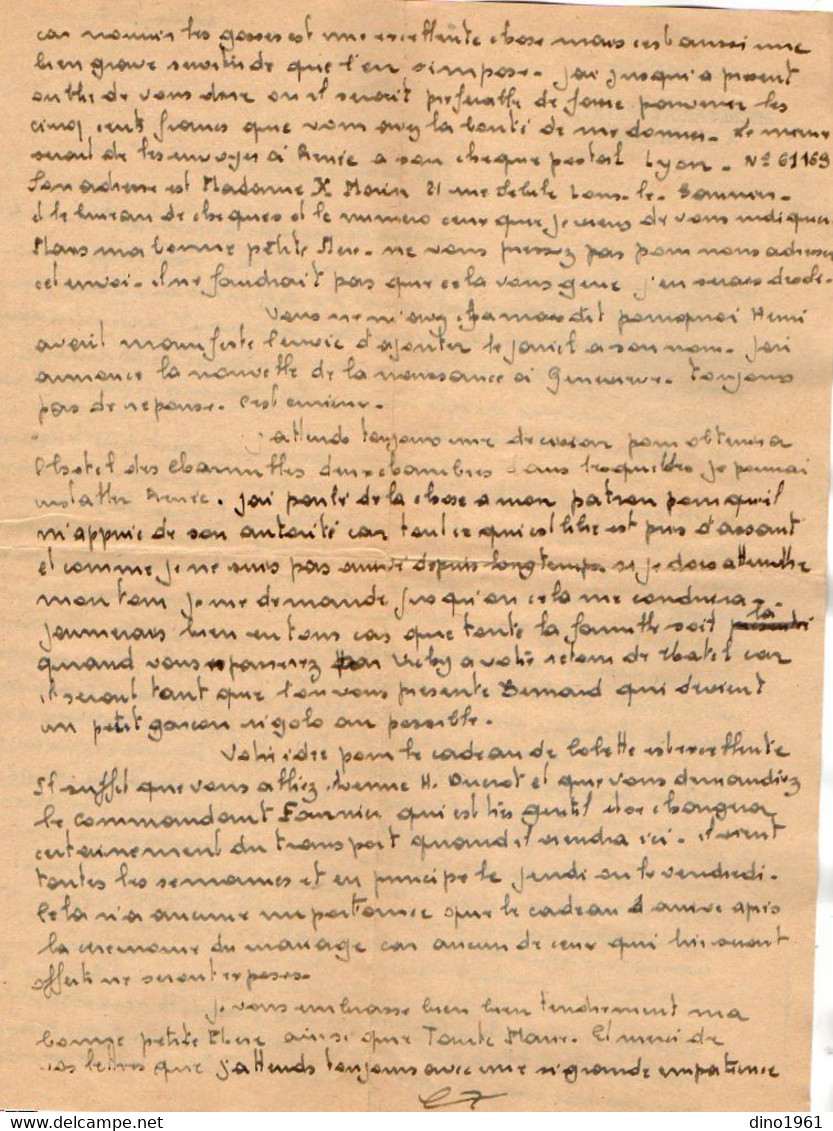 car nourrir les gosses est une excellente chose mais c'est aussi une
bien grave servitude que l'on s'impose. J'ai jusqu'à présent
oublié de vous dire où il serait préférable de faire parvenir les
cinq cents francs que vous avez la bonté de me donner. Le mieux
serait de les envoyer à Renée à son chèque postal Lyon. N° 61169
Son adresse est Madame X Morin 21 rue Lons-le-Saunier.
et le bureau de chèques et le numéro ceux que je viens de vous indiquer
Mais ma bonne petite Mère. ne vous pressez pas pour nous adresser
cet envoi. il ne faudrait pas que cela vous gêne j'en serais désolé.
Vous ne m'avez jamais dit pourquoi Henri
avait manifesté l'envie d'ajouter le à son nom. J'ai
annoncé la nouvelle de la naissance à Geneviève. Toujours
pas de réponse. C'est curieux.
J'attends toujours une décision pour obtenir à
l'hôtel des Charmilles deux chambres dans lesquelles je pourrai
installer Renée. J'ai parlé de la chose à mon patron pour qu'il
m'appuie de son autorité car tout ce qui est libre est pris d'assaut
et comme je ne suis pas arrivé depuis longtemps si je dois attendre
mon tour je me demande jusqu'où cela me conduira.
J'aimerais bien en tous cas que toute la famille soit là
quand vous passerez par Vichy à votre retour de Chatel car
il serait tant que l'on vous présente Bernard qui devient
un petit garçon rigolo au possible.
Votre idée pour le cadeau de Colette est excellente
Il suffit que vous alliez Avenue H. Ducrot et que vous demandiez
le commandant Fournier qui est très gentil et se chargera
certainement du transport quand il viendra ici. il vient
toutes les semaines et en principe le jeudi ou le vendredi.
Cela n'a aucune importance que le cadeau arrive après
la cérémonie du mariage car aucun de ceux qui lui seront
offerts ne seront exposés.
Je vous embrasse bien bien tendrement ma
bonne petite Mère ainsi que Tante Marie. Et merci de
vos lettres que j'attends toujours avec une si grande impatience
dino1961